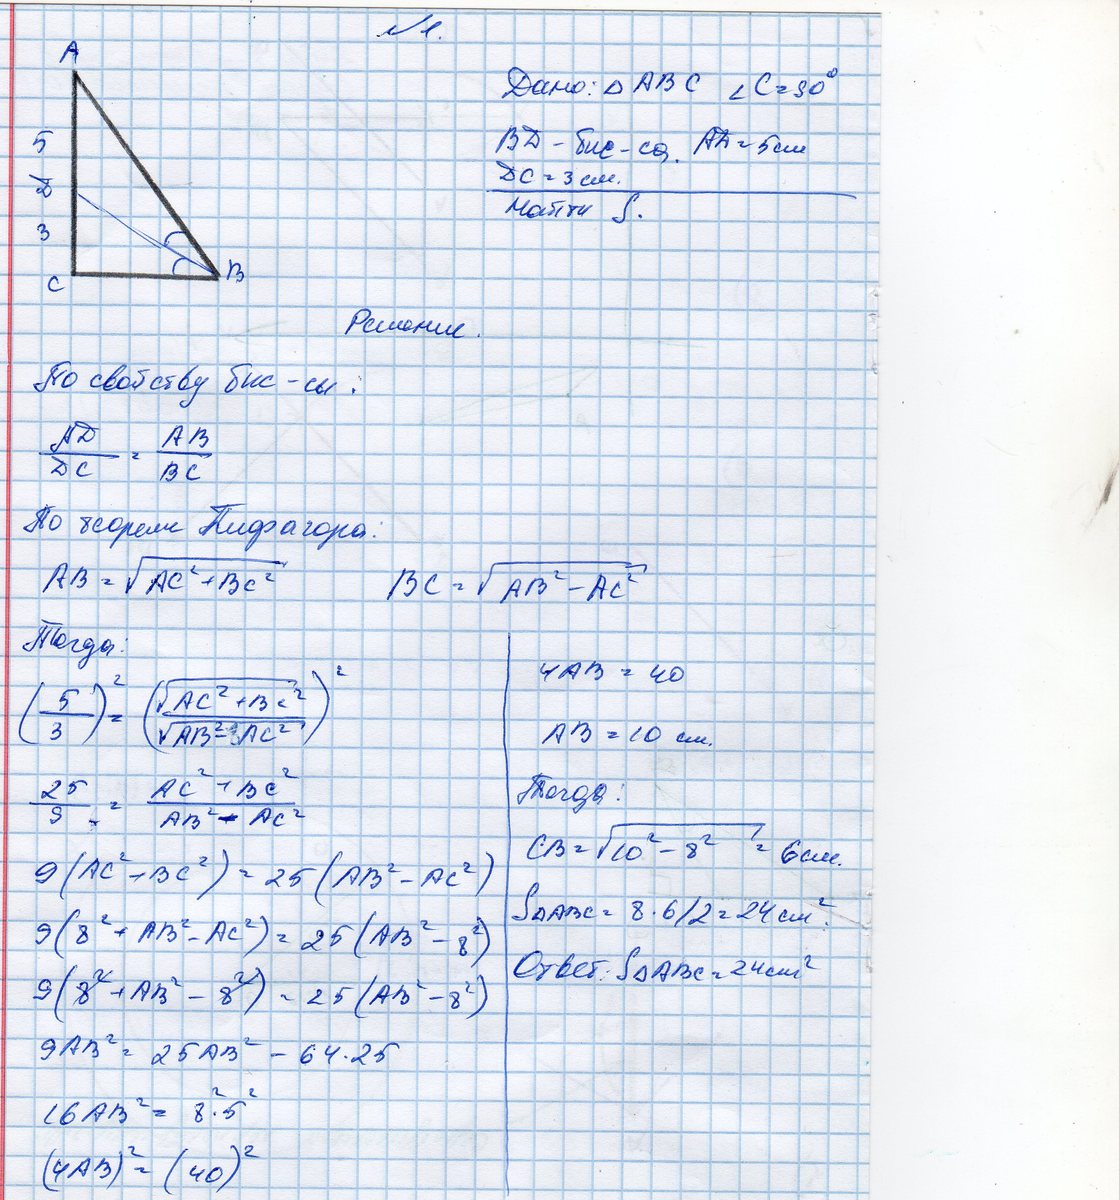 №1.
A
5
D
3
C
B
Дано: △ABC ∠C=90°
BD – бис-са. AD=5см
DC=3 см.
Найти S.
Решение.
По свойству бис-сы:
AD/DC = AB/BC
По теореме Пифагора:
AB = √(AC²+BC²) BC = √(AB²–AC²)
Тогда:
(5/3)² = (√(AC²+BC²)/√(AB²–AC²))²
25/9 = (AC²+BC²)/(AB²–AC²)
9(AC²+BC²) = 25(AB²–AC²)
9(8²+AB²–AC²) = 25(AB²–8²)
9(8²+AB²–8²) = 25(AB²–8²)
9AB² = 25AB² – 64·25
16AB² = 8²·5²
(4AB)² = (40)²
4AB = 40
AB = 10 см.
Тогда:
CB = √(10²–8²) = 6см.
S△ABC = 8·6/2 = 24 см².
Ответ: S△ABC = 24см²